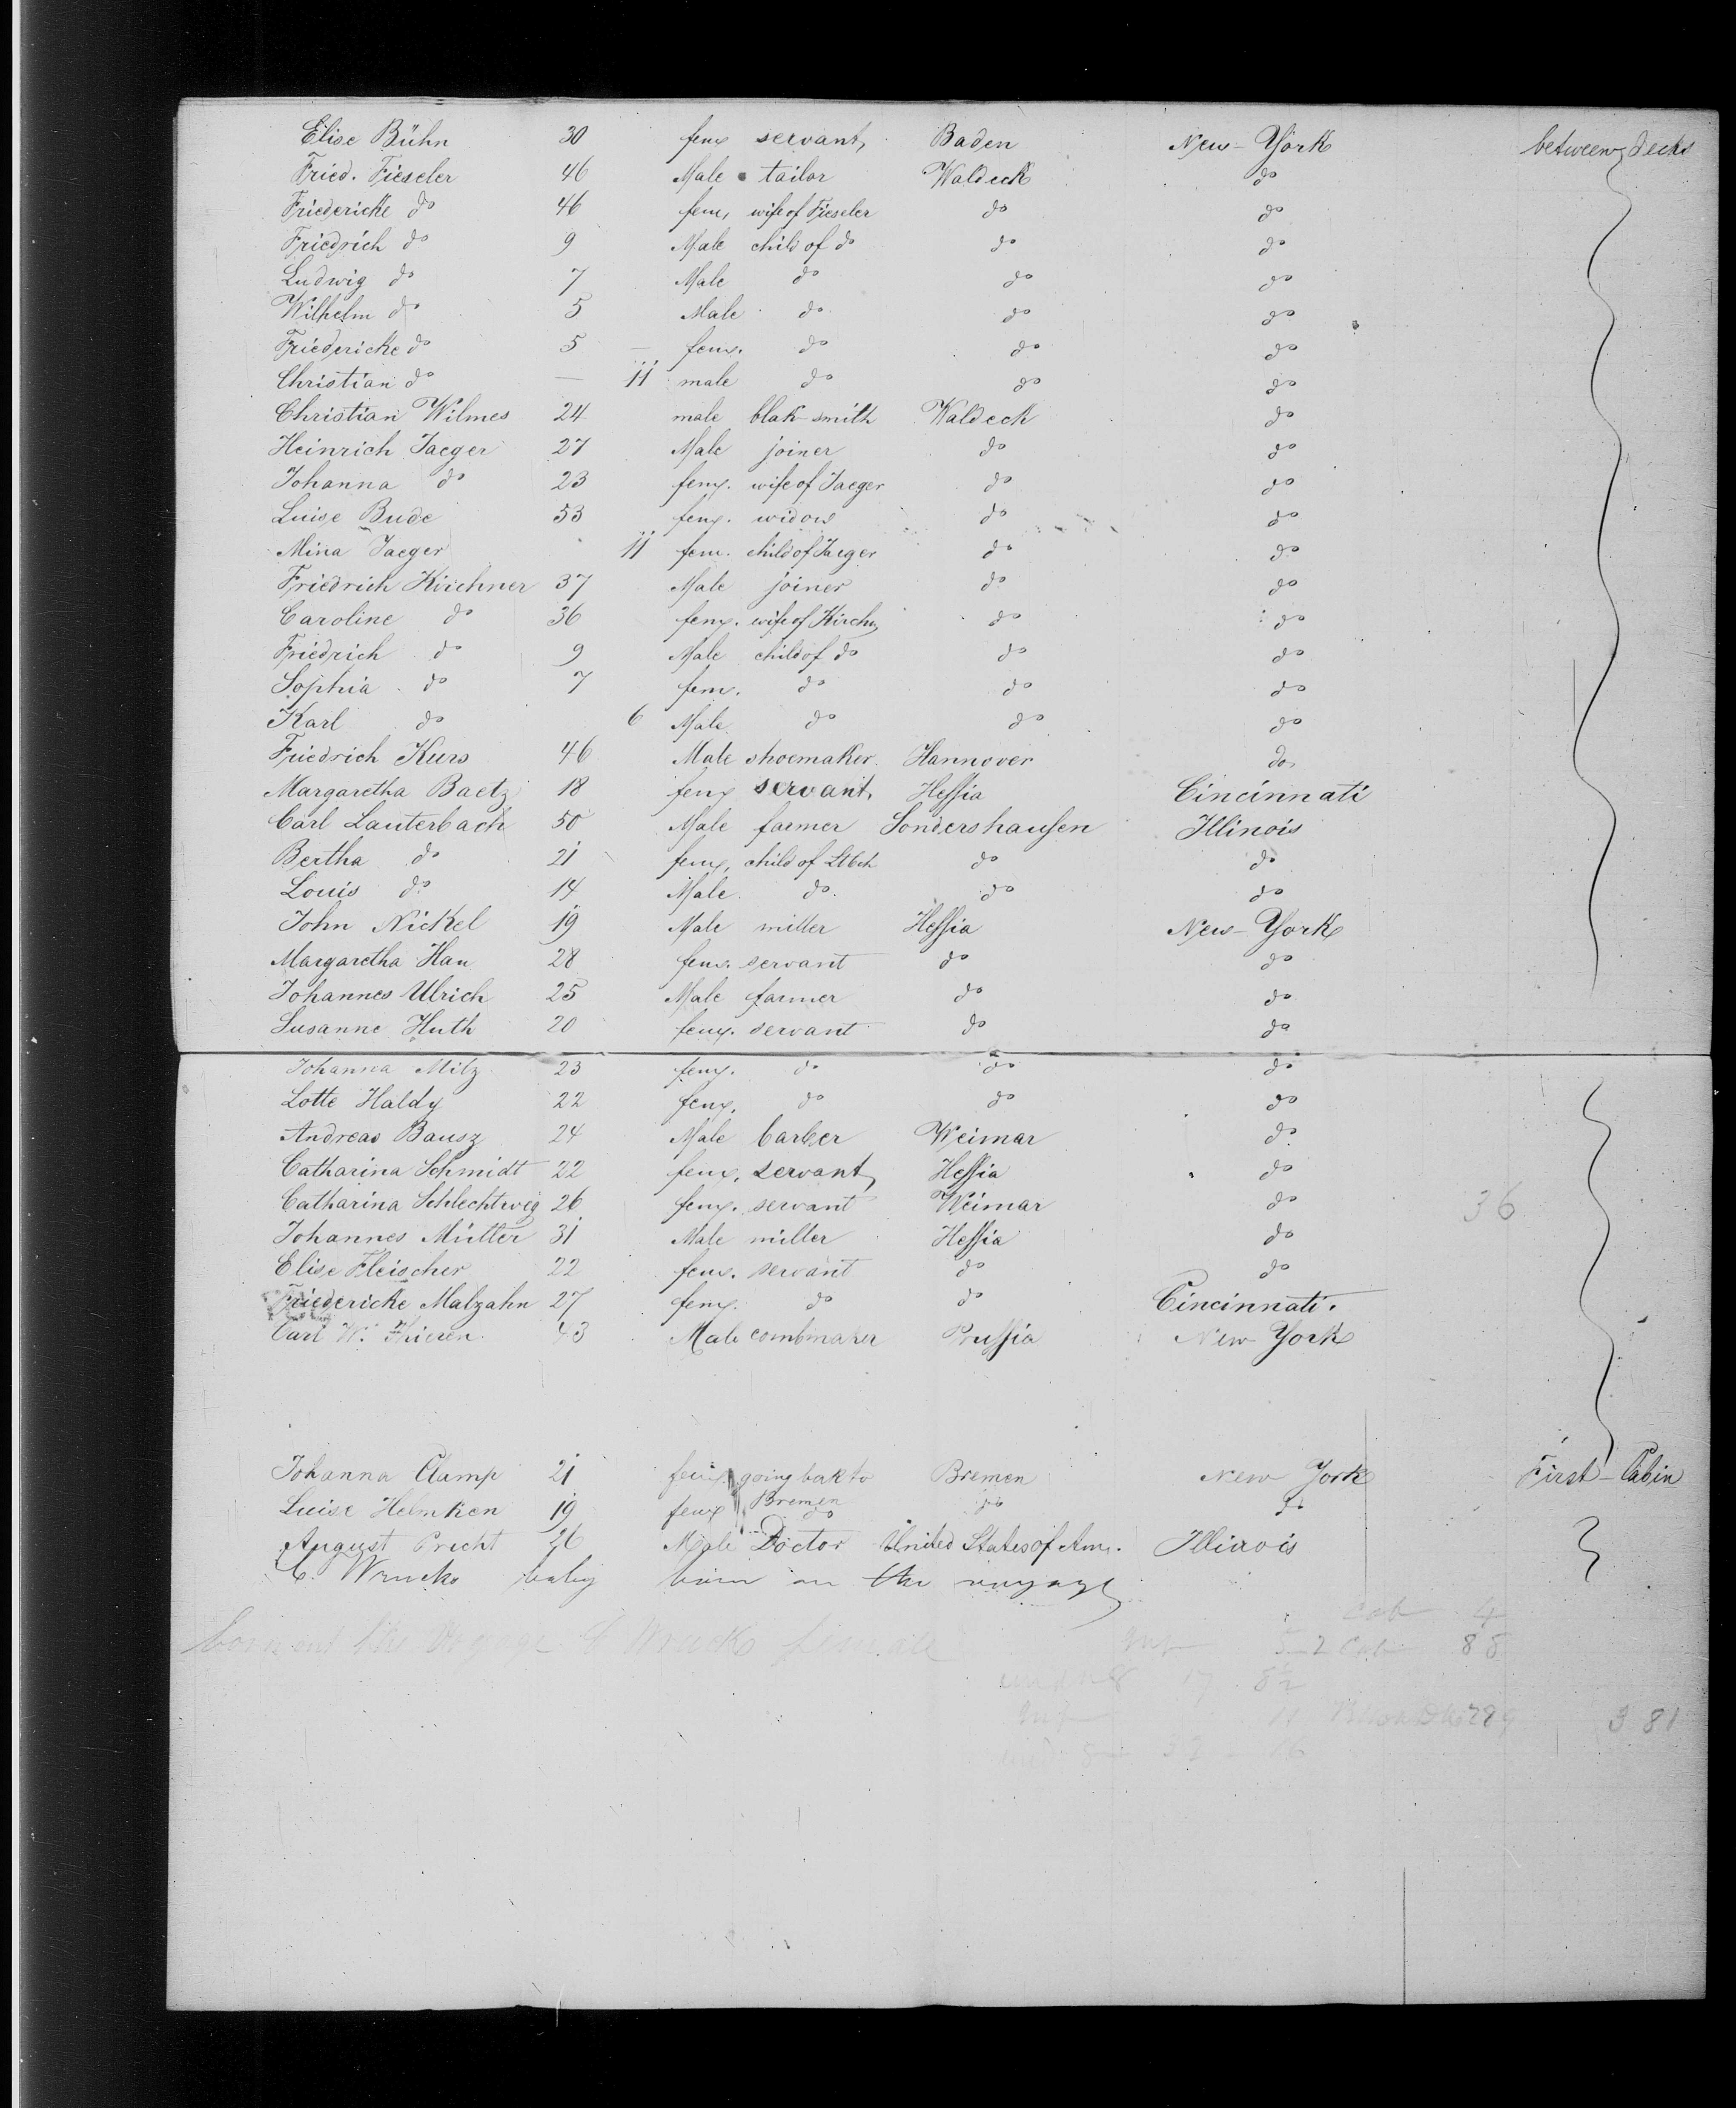 Elise Bühn 30 fem servant Baden New-York between decks
Fried. Fieseler 46 Male tailor Waldeck do
Friedericke do 46 fem, wife of Fieseler do do
Friedrich do 9 Male child of do do do
Ludwig do 7 Male do do do
Wilhelm do 5 Male do do do
Friedericke do 5 — fem. do do do
Christian do — 11 male do do do
Christian Wilmes 24 male blak-smith Waldeck do
Heinrich Jaeger 27 Male joiner do do
Johanna do 23 fem. wife of Jaeger do do
Luise Bude 53 fem. widow do do
Mina Jaeger 11 fem. child of Jaeger do do
Friedrich Kirchner 37 Male joiner do do
Caroline do 36 fem. wife of Kirchn do do
Friedrich do 9 Male child of do do do
Sophia do 7 fem. do do do
Karl do 6 Male do do do
Friedrich Kurs 46 Male shoemaker Hannover do
Margaretha Baetz 18 fem servant, Hessia Cincinnati
Carl Lauterbach 50 Male farmer Sondershausen Illinois
Bertha do 21 fem, child of Ltbch do do
Louis do 14 Male do do do
John Nickel 19 Male miller Hessia New-York
Margaretha Hau 28 fem. servant do do
Johannes Ulrich 25 Male farmer do do
Susanne Huth 20 fem. servant do do
Johanna Milz 23 fem. do do do
Lotte Haldy 22 fem. do do do
Andreas Bausz 24 Male barber Weimar do
Catharina Schmidt 22 fem. servant Hessia do
Catharina Schlechtweg 26 fem. servant Weimar do 36
Johannes Mütter 31 Male miller Hessia do
Elise Fleischer 22 fem. servant do do
Friedericke Malzahn 27 fem. do do Cincinnati.
Carl W. Thieren 43 Male combmaker Prussia New York
Johanna Clamp 21 fem going bak to Bremen New York First-Cabin
Bremen
Luise Helmken 19 fem do do do
August Precht 26 Male Doctor United States of Am. Illinois
C. Wrucks baby born on the voyage
Cab 4
born on the Voyage C Wrucks female Inf 5 2 Cab 88
17
Inf 11
381